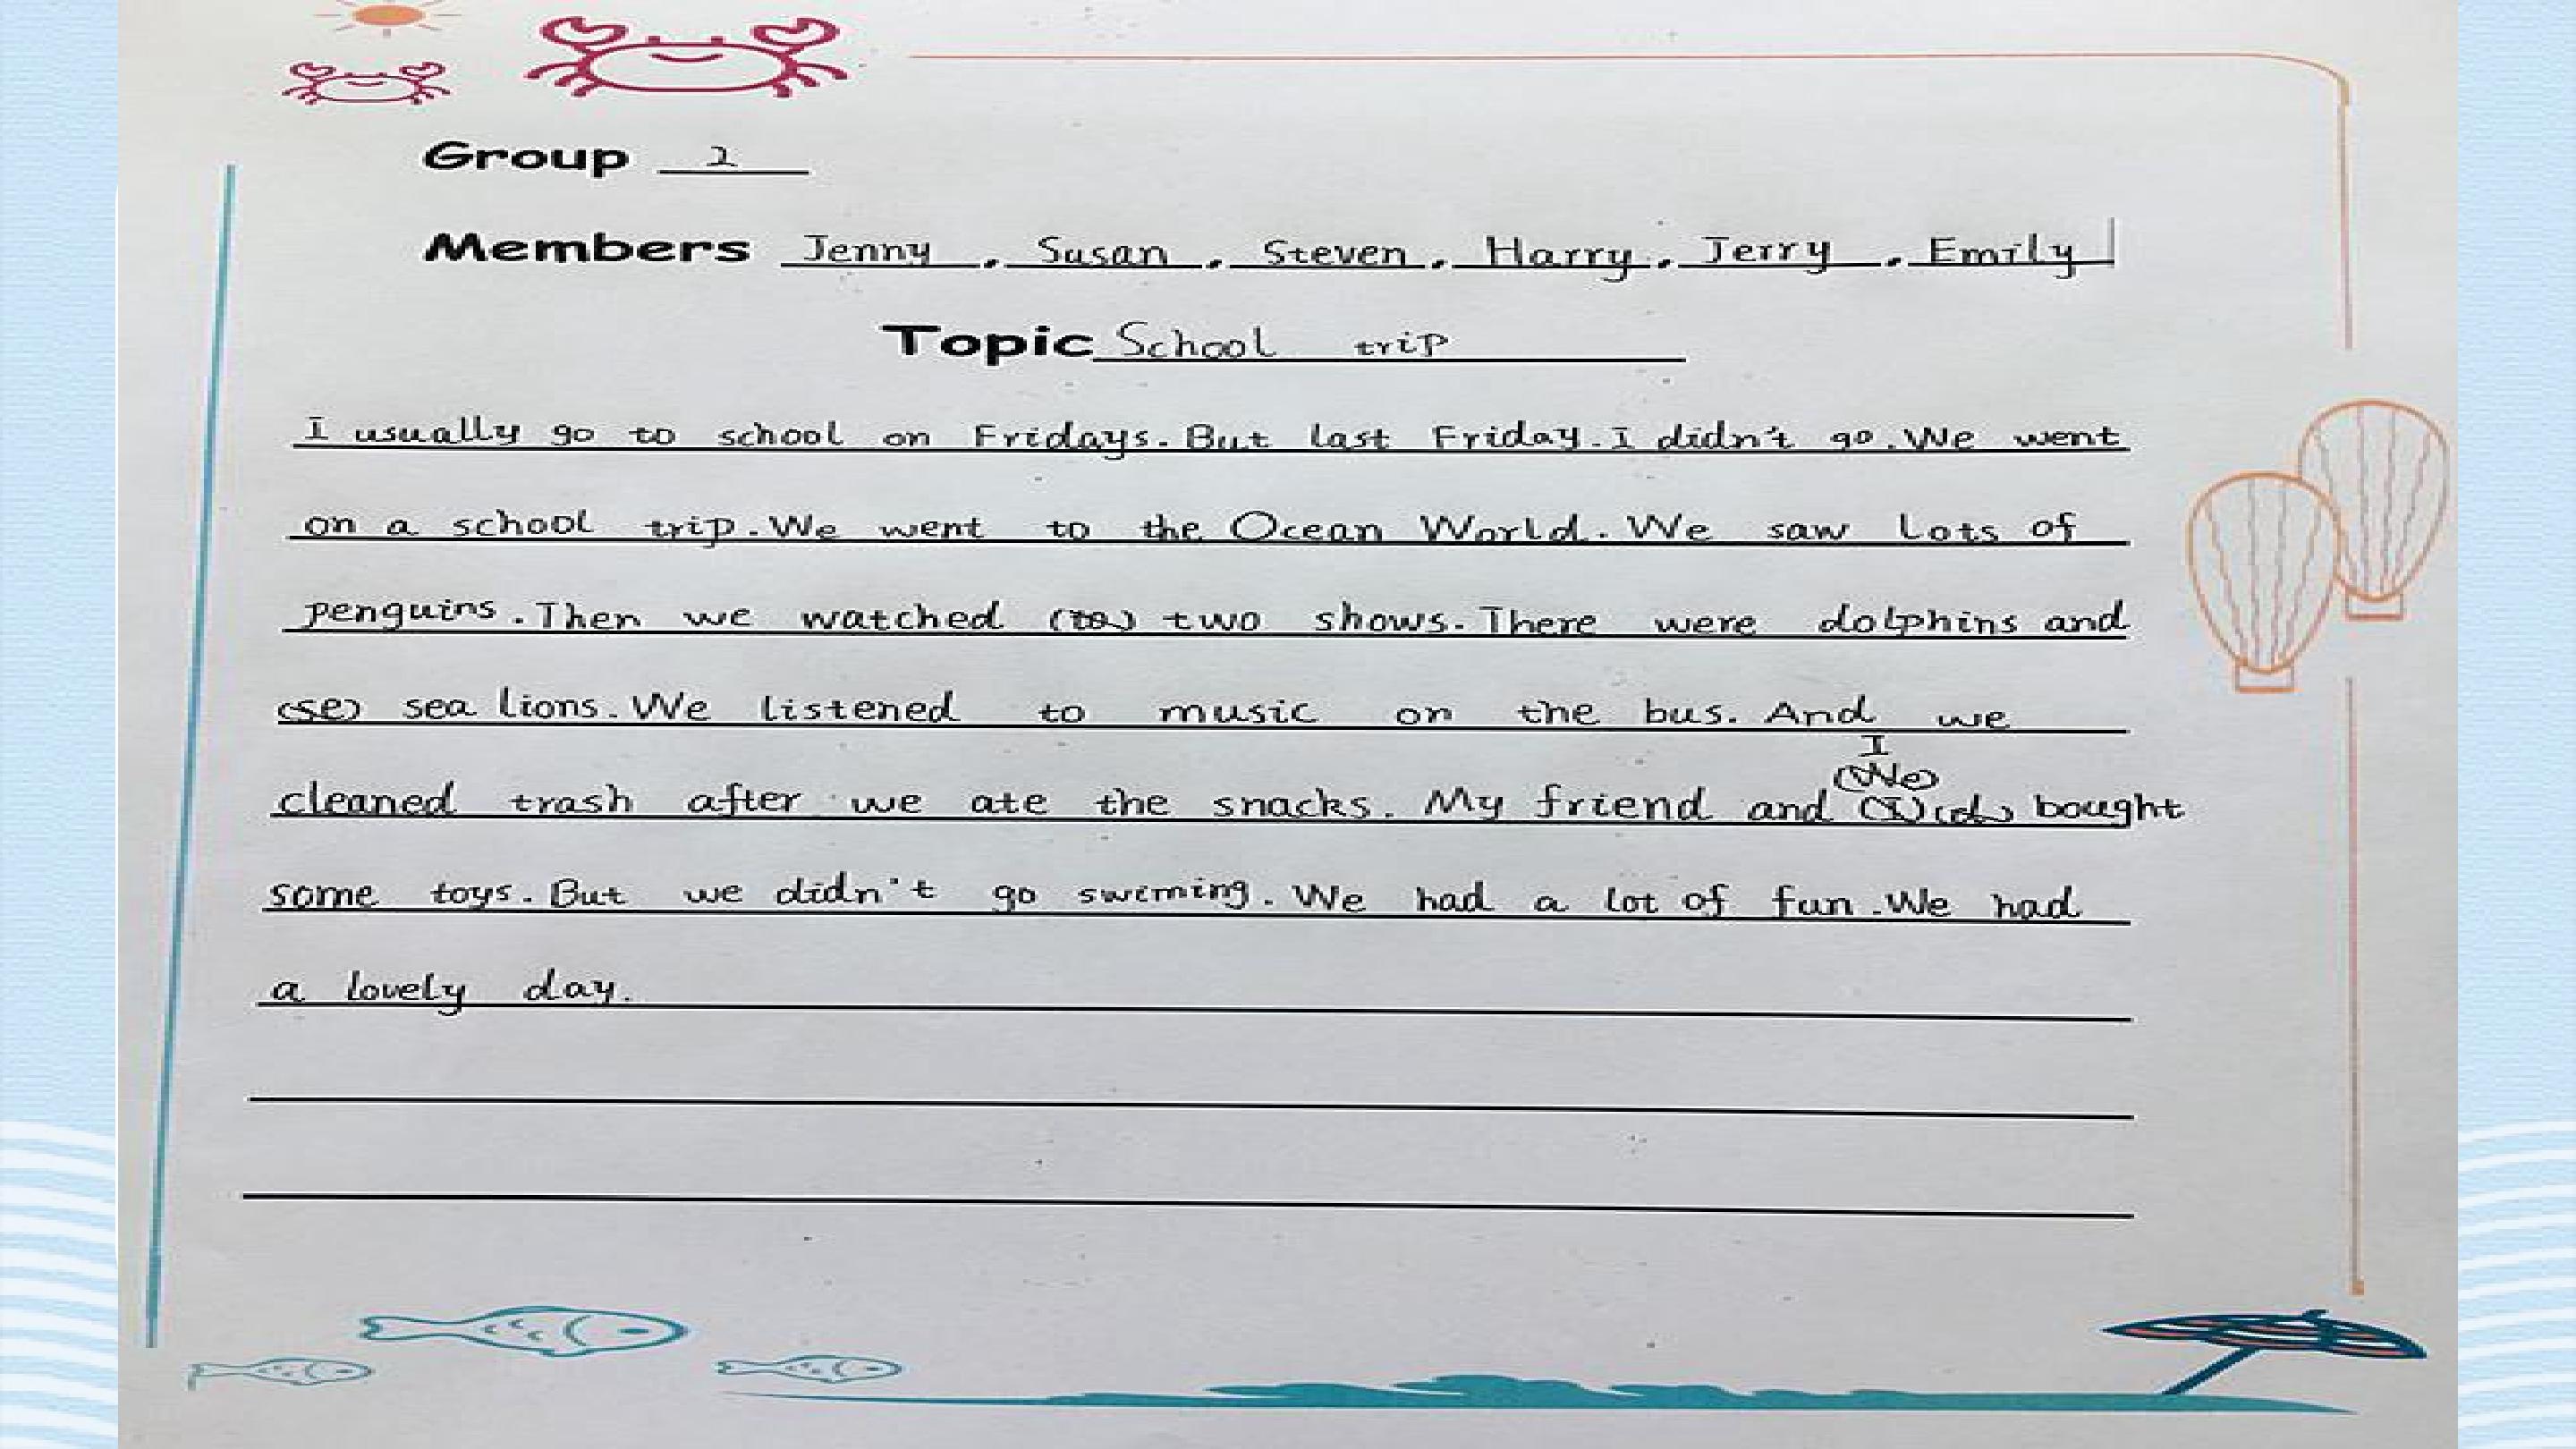 Group 2
Members Jenny, Susan, Steven, Harry, Jerry, Emily
Topic School trip
I usually go to school on Fridays. But last Friday. I didn't go. We went
on a school trip. We went to the Ocean World. We saw lots of
penguins. Then we watched (to) two shows. There were dolphins and
(se) sea lions. We listened to music on the bus. And we
I
(We)
cleaned trash after we ate the snacks. My friend and (I) (d) bought
some toys. But we didn't go swiming. We had a lot of fun. We had
a lovely day.